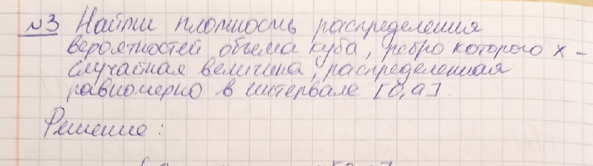 №3 Найти плотность распределения
вероятностей объема куба, ребро которого x –
случайная величина, распределенная
равномерно в интервале [0,a].
Решение: